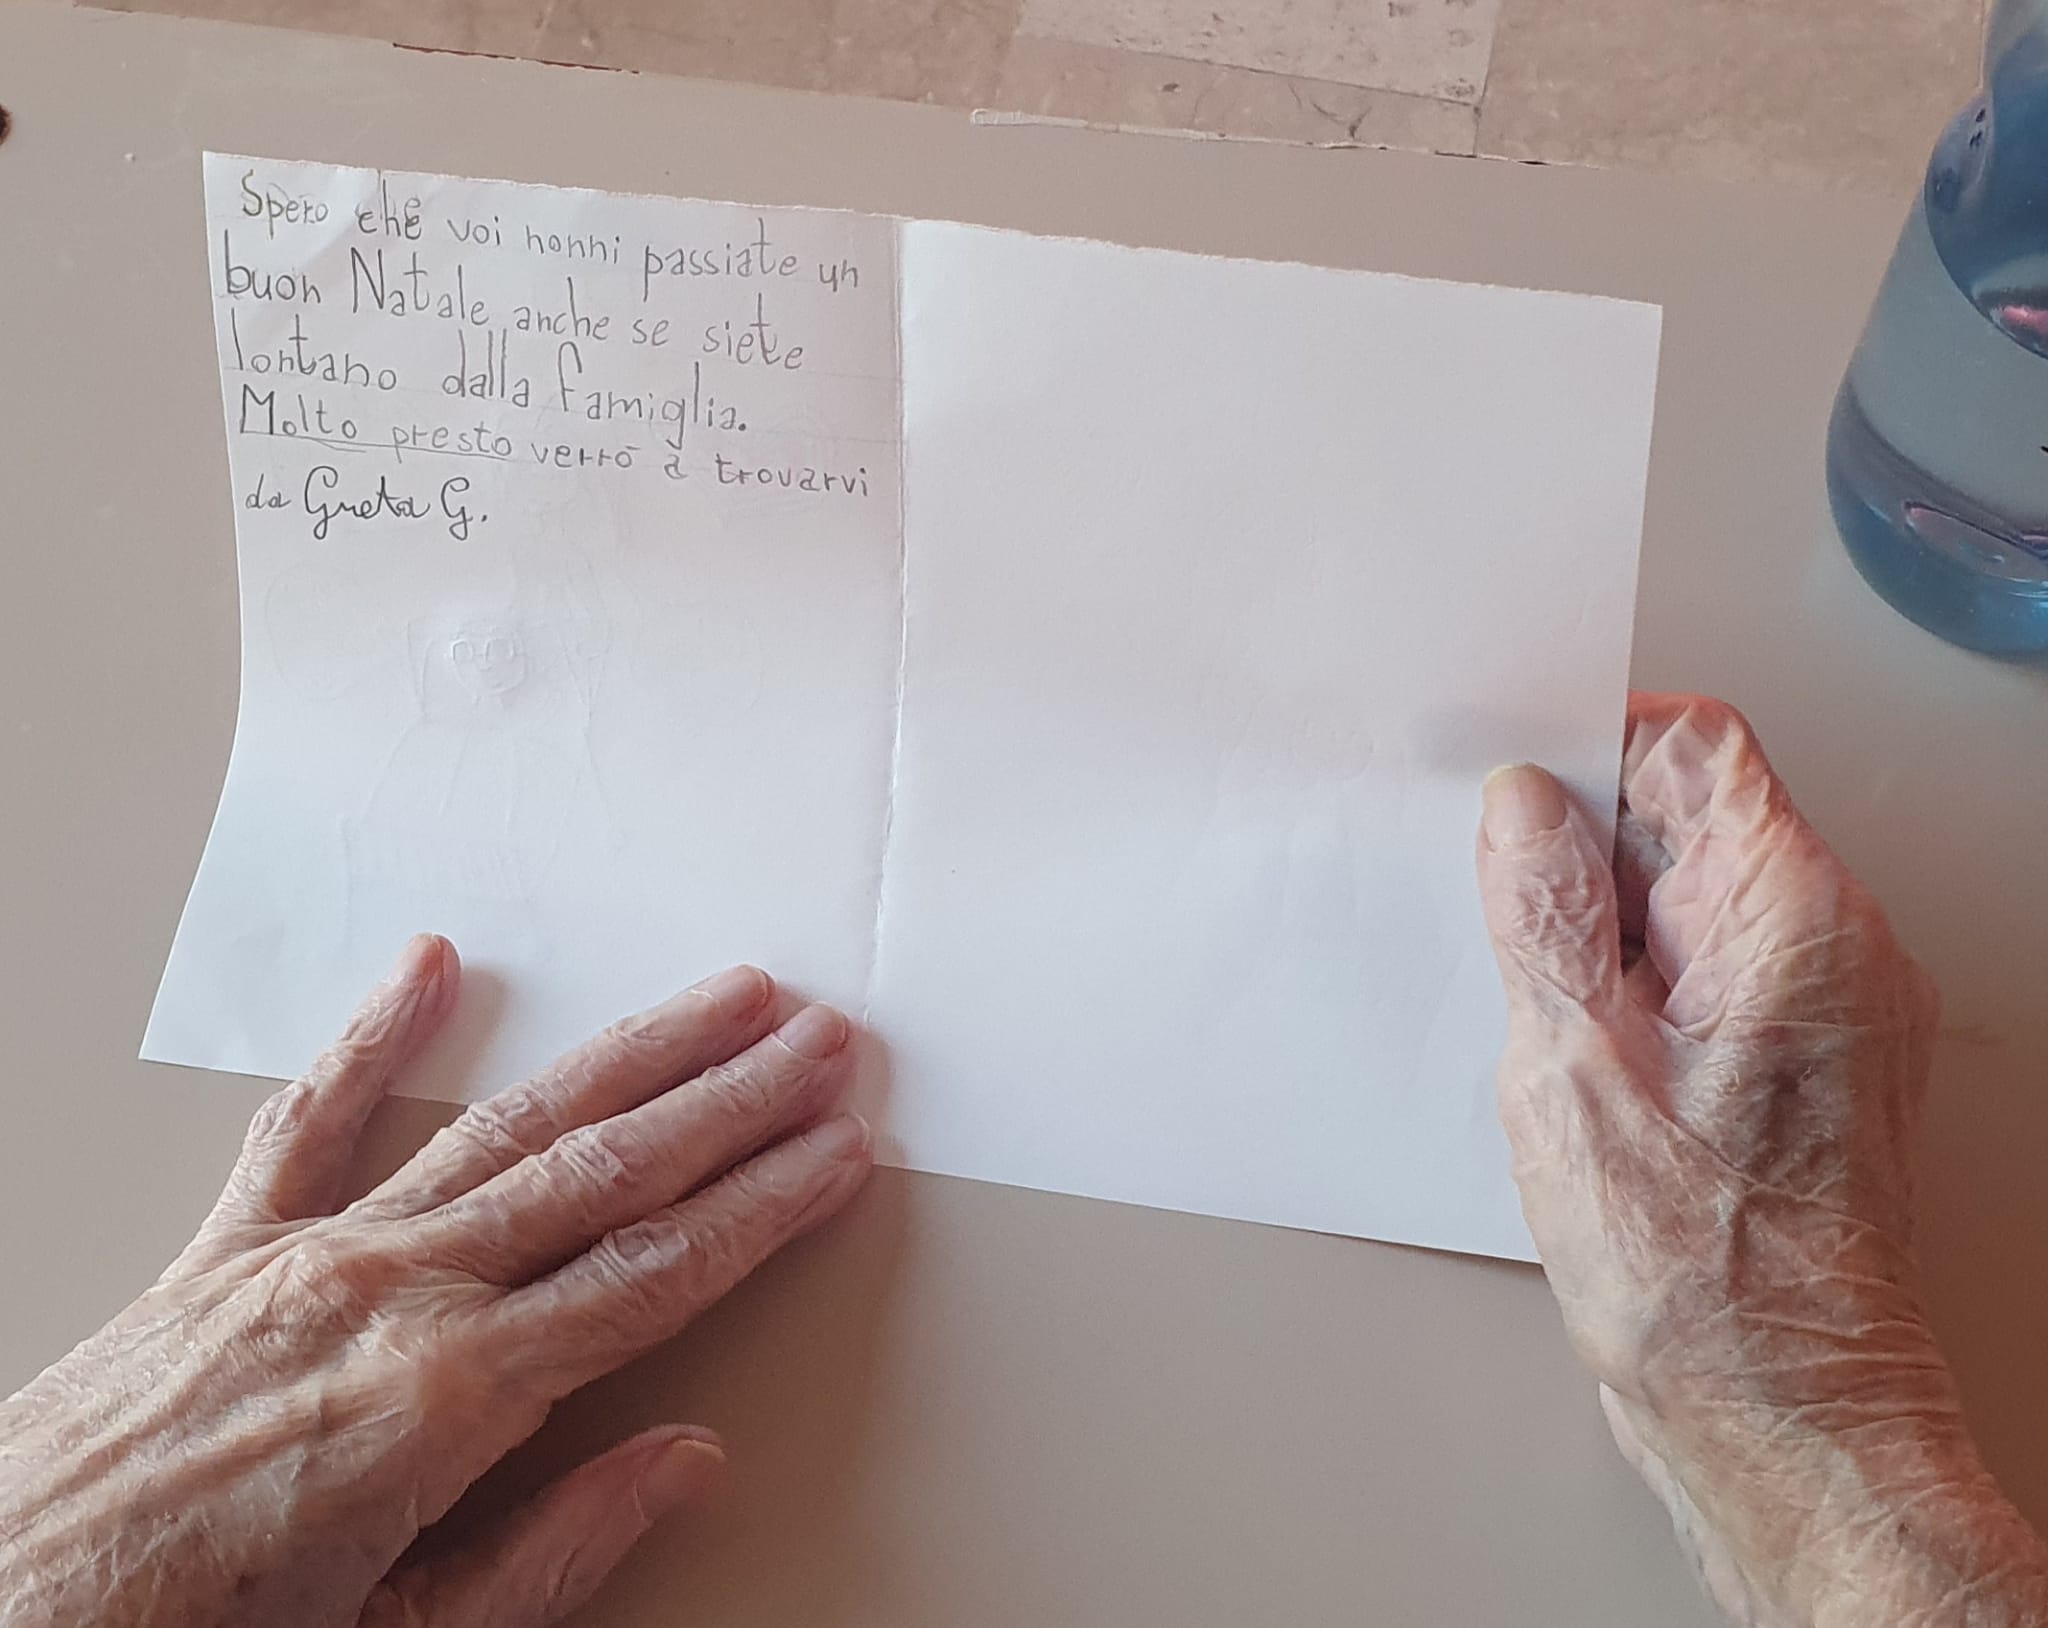 Spero che voi nonni passiate un
buon Natale anche se siete
lontano dalla famiglia.
Molto presto verrò a trovarvi
da Greta G.